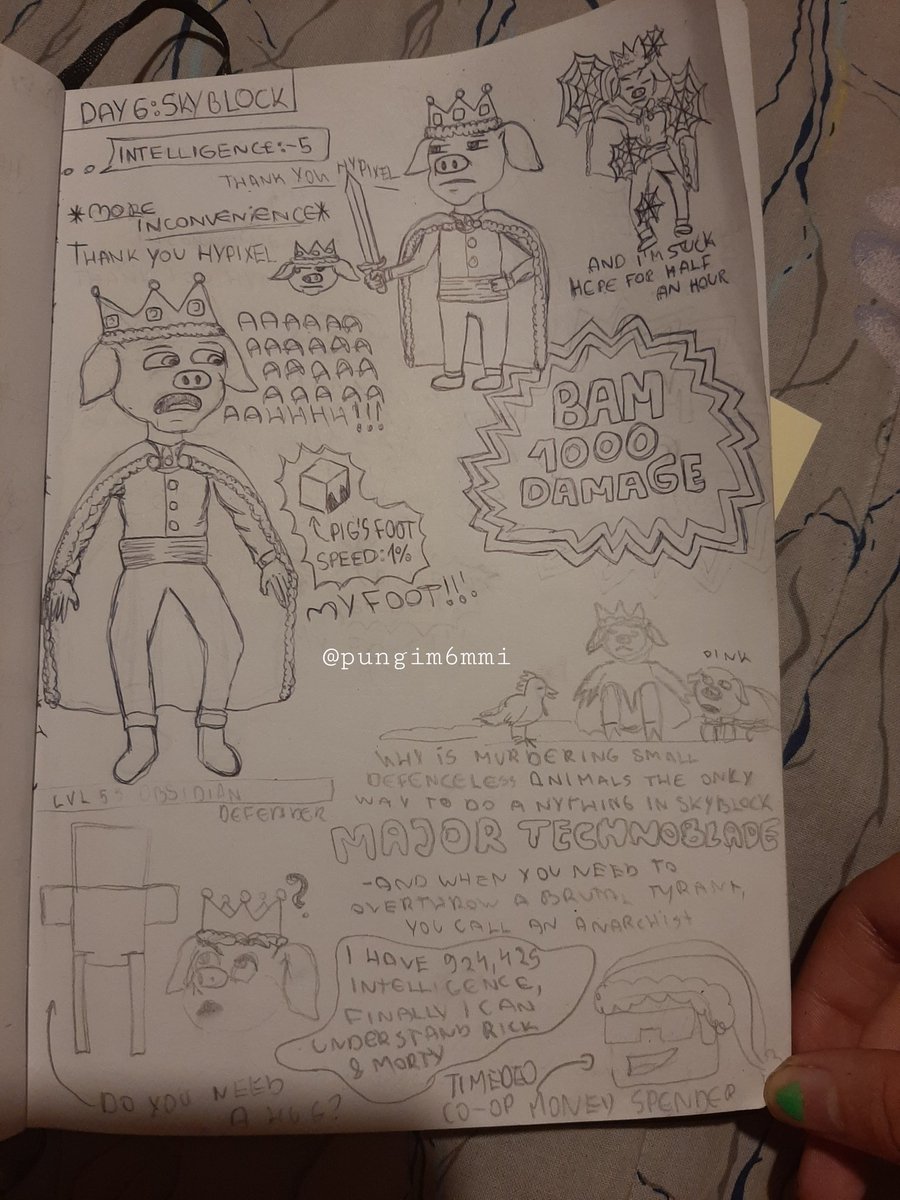 DAY 6: SKYBLOCK
INTELLIGENCE:-5
THANK YOU HYPIXEL
*MORE
INCONVENIENCE*
THANK YOU HYPIXEL
AND I'M STUCK
HERE FOR HALF
AN HOUR
AAAAAA
AAAAAA
AAAAA
AAAAA
AAHHHH!!!
BAM
1000
DAMAGE
PIG'S FOOT
SPEED:1%
MY FOOT!!!
@pungim6mmi
OINK
WHY IS MURDERING SMALL
DEFENCELESS ANIMALS THE ONLY
WAY TO DO ANYTHING IN SKYBLOCK
LVL 55 OBSIDIAN
DEFENDER
MAJOR TECHNOBLADE
-AND WHEN YOU NEED TO
OVERTHROW A BRUTAL TYRANT,
YOU CALL AN ANARCHIST
?
I HAVE 924,425
INTELLIGENCE,
FINALLY I CAN
UNDERSTAND RICK
& MORTY
DO YOU NEED
A HUG?
TIMEDEO
CO-OP MONEY SPENDER